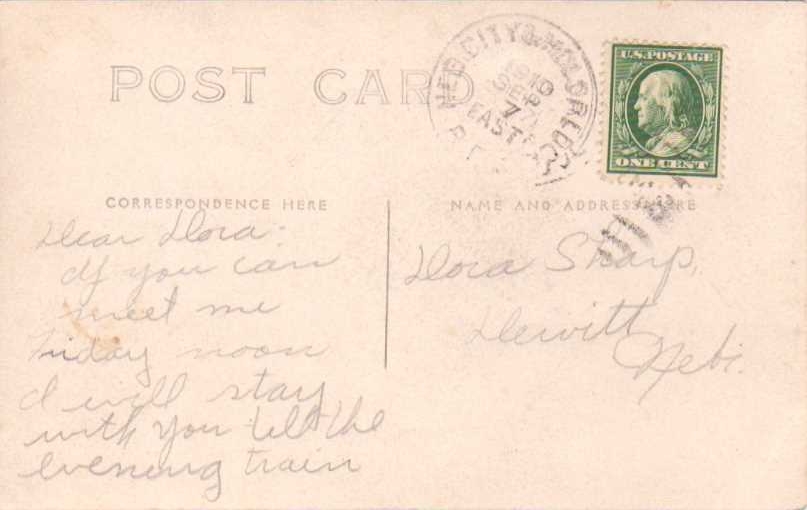 POST CARD
NEB. CITY & McCOOL JCT.
1910
SEP
7
EAST
R.P.O.
U.S. POSTAGE
ONE CENT
CORRESPONDENCE HERE
NAME AND ADDRESS HERE
Dear Dora:
If you can
meet me
Friday noon
I will stay
with you till the
evening train
Dora Sharp,
Dewitt
Nebr.